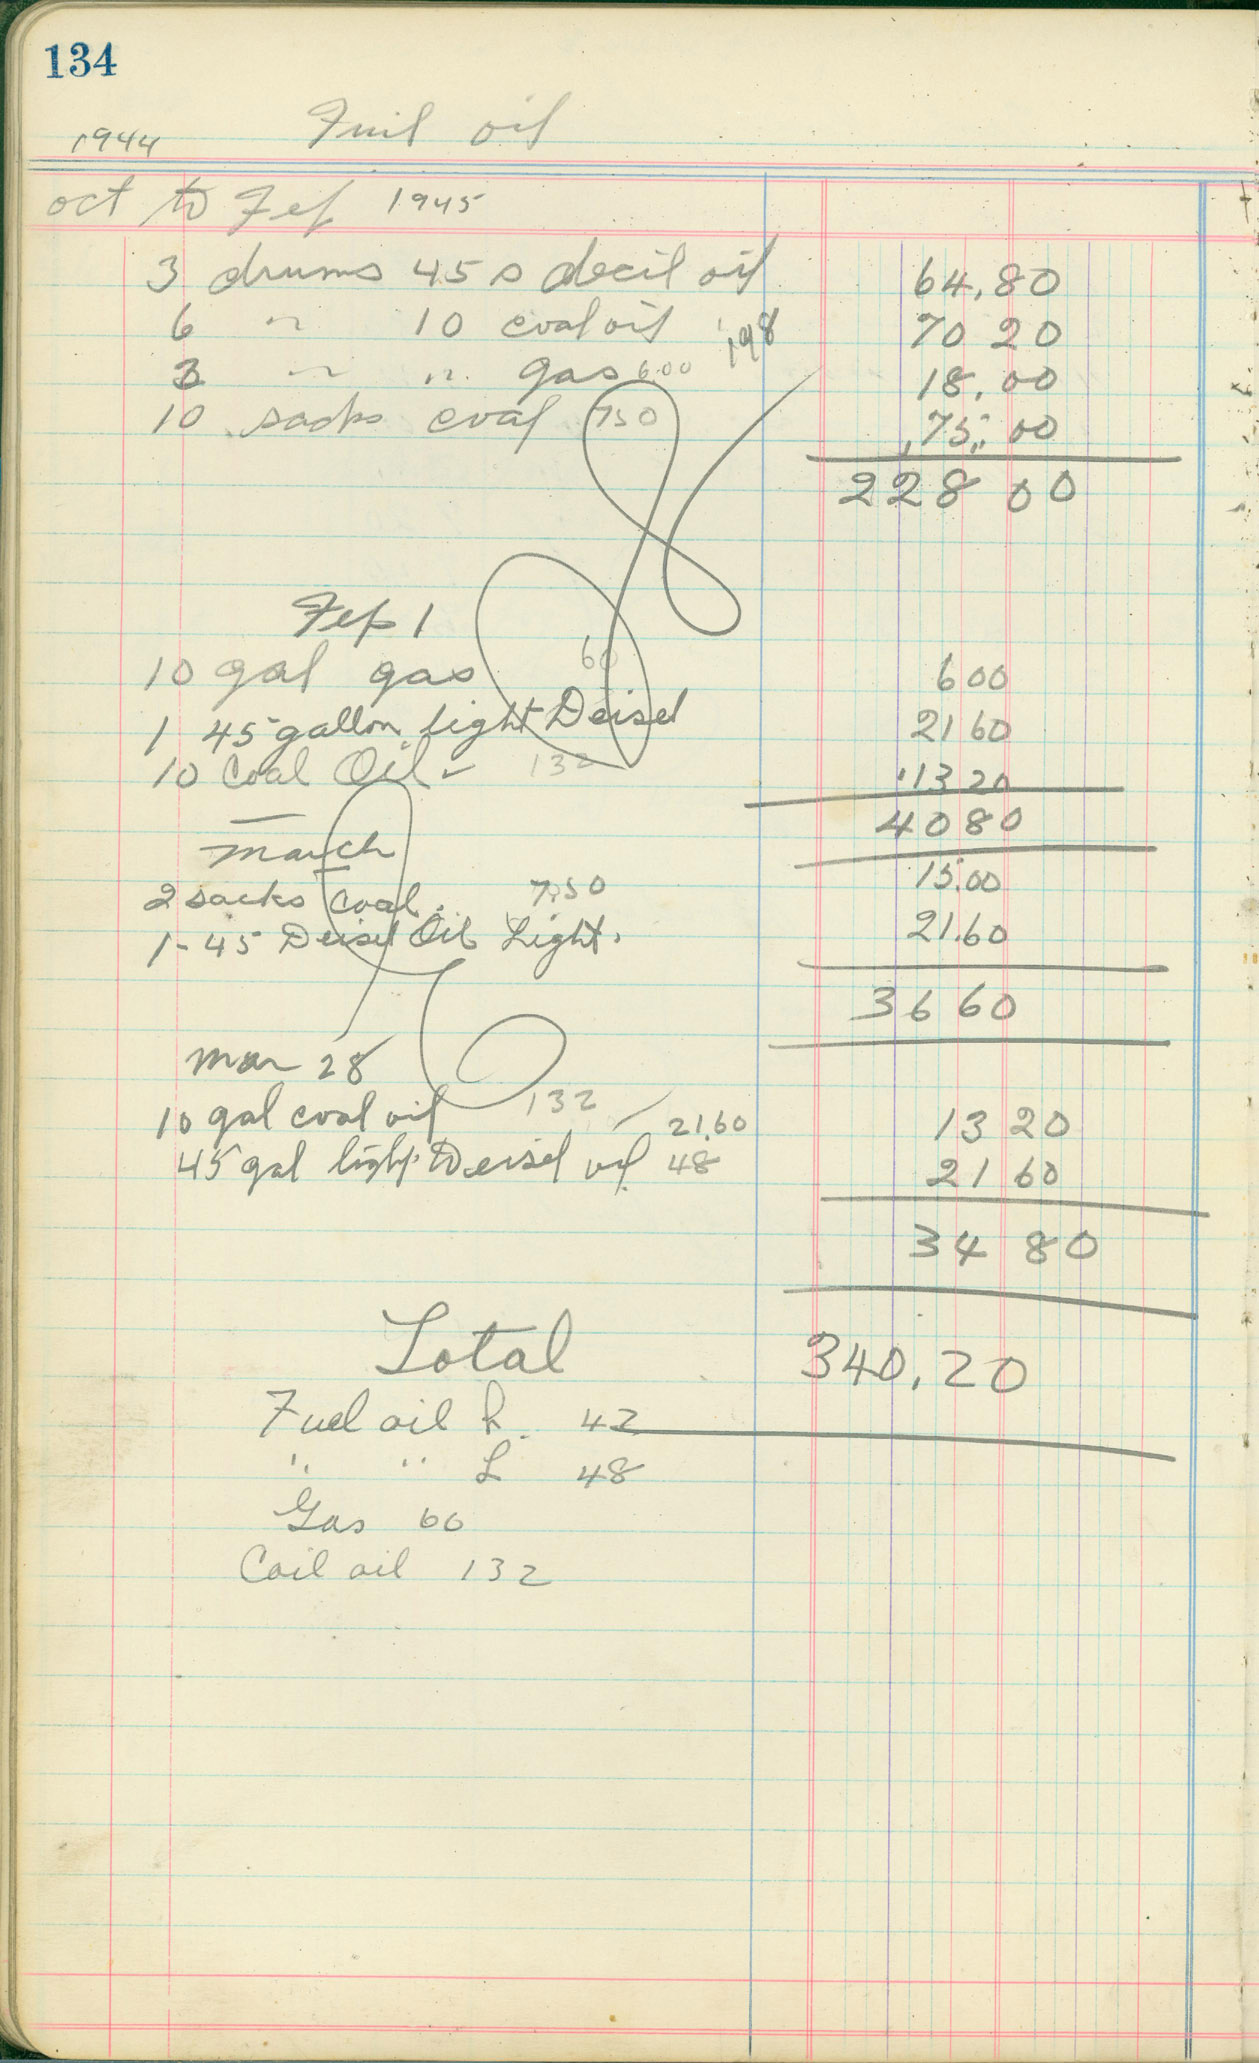 134
1944 Fuil oil
oct to Fef 1945
3 drums 45 s decil oil 64.80
6 " 10 coal oil 198 70 20
3 " " gas 6.00 18.00
10 sacks coal 750 75.00
228 00
Fep 1
10 gal gas 60 600
1 45 gallon light Deisel 2160
10 Coal Oil - 132 1320
4080
March
2 sacks Coal. 7.50 15.00
1-45 Deisel Oil Light. 21.60
3660
Mar 28
10 gal coal oil 132 1320
21.60
45 gal light Deisel oil 48 2160
34 80
Total 340.20
Fuel oil h. 42
" " L 48
Gas 60
Coil oil 132